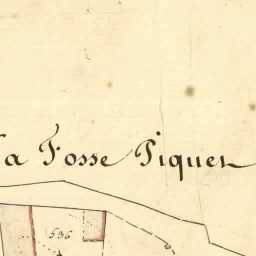 la Fosse Piquet
536